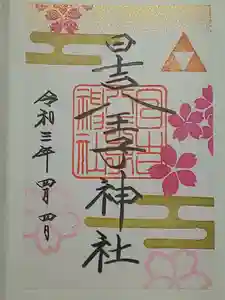 日吉八王子神社
令和三年四月四日